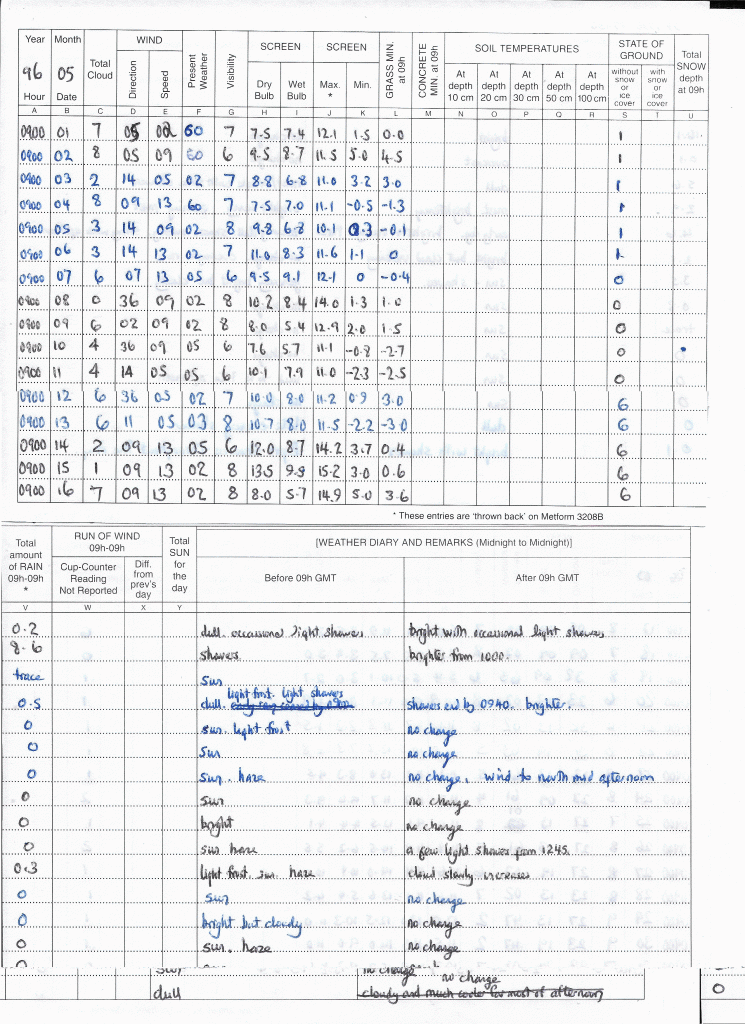 Year Month Total Cloud WIND Present Weather Visibility SCREEN SCREEN GRASS MIN. at 09h CONCRETE MIN. at 09h SOIL TEMPERATURES STATE OF GROUND Total SNOW depth at 09h
96 05 Direction Speed Dry Bulb Wet Bulb Max. * Min. At depth 10 cm At depth 20 cm At depth 30 cm At depth 50 cm At depth 100 cm without snow or ice cover with snow or ice cover
Hour Date
A B C D E F G H I J K L M N O P Q R S T U
0900 01 7 05 02 60 7 7.5 7.4 12.1 1.5 0.0 1
0900 02 8 05 09 60 6 9.5 8.7 11.5 5.0 4.5 1
0900 03 2 14 05 02 7 8.8 6.8 11.0 3.2 3.0 1
0900 04 8 09 13 60 7 7.5 7.0 11.1 -0.5 -1.3 1
0900 05 3 14 09 02 8 9.8 6.8 10.1 0.3 -0.1 1
0900 06 3 14 13 02 7 11.0 8.3 11.6 1.1 0 1
0900 07 6 07 13 05 6 9.5 9.1 12.1 0 -0.4 0
0900 08 0 36 09 02 8 10.2 8.4 14.0 1.3 1.0 0
0900 09 6 02 09 02 8 8.0 5.4 12.9 2.0 1.5 0
0900 10 4 36 09 05 6 7.6 5.7 11.1 -0.8 -2.7 0
0900 11 4 14 05 05 6 10.1 7.9 11.0 -2.3 -2.5 0
0900 12 6 36 05 02 7 10.0 8.0 11.2 0.9 3.0 6
0900 13 6 11 05 03 8 10.7 8.0 11.5 -2.2 -3.0 6
0900 14 2 09 13 05 6 12.0 8.7 14.2 3.7 0.4 6
0900 15 1 09 13 02 8 13.5 9.9 15.2 3.0 0.6 6
0900 16 7 09 13 02 8 8.0 5.7 14.9 5.0 3.6 6
* These entries are 'thrown back' on Metform 3208B
Total amount of RAIN 09h-09h * RUN OF WIND 09h-09h Total SUN for the day [WEATHER DIARY AND REMARKS (Midnight to Midnight)]
Cup-Counter Reading Not Reported Diff. from prev's day Before 09h GMT After 09h GMT
V W X Y
0.2 dull. occassional light showers bright with occassional light showers
8.6 showers. brighter from 1000.
trace sun
light frost. light showers
0.5 dull. showers end by 0940. brighter.
0 sun. light frost no change
0 sun no change
0 sun. haze no change. wind to north mid afternoon
0 sun no change
0 bright no change
0 sun haze a few light showers from 1245.
0.3 light frost. sun. haze cloud slowly increases
0 sun no change
0 bright but cloudy no change
0 sun. haze no change
no change
dull cloudy and much cooler for most of afternoon 0